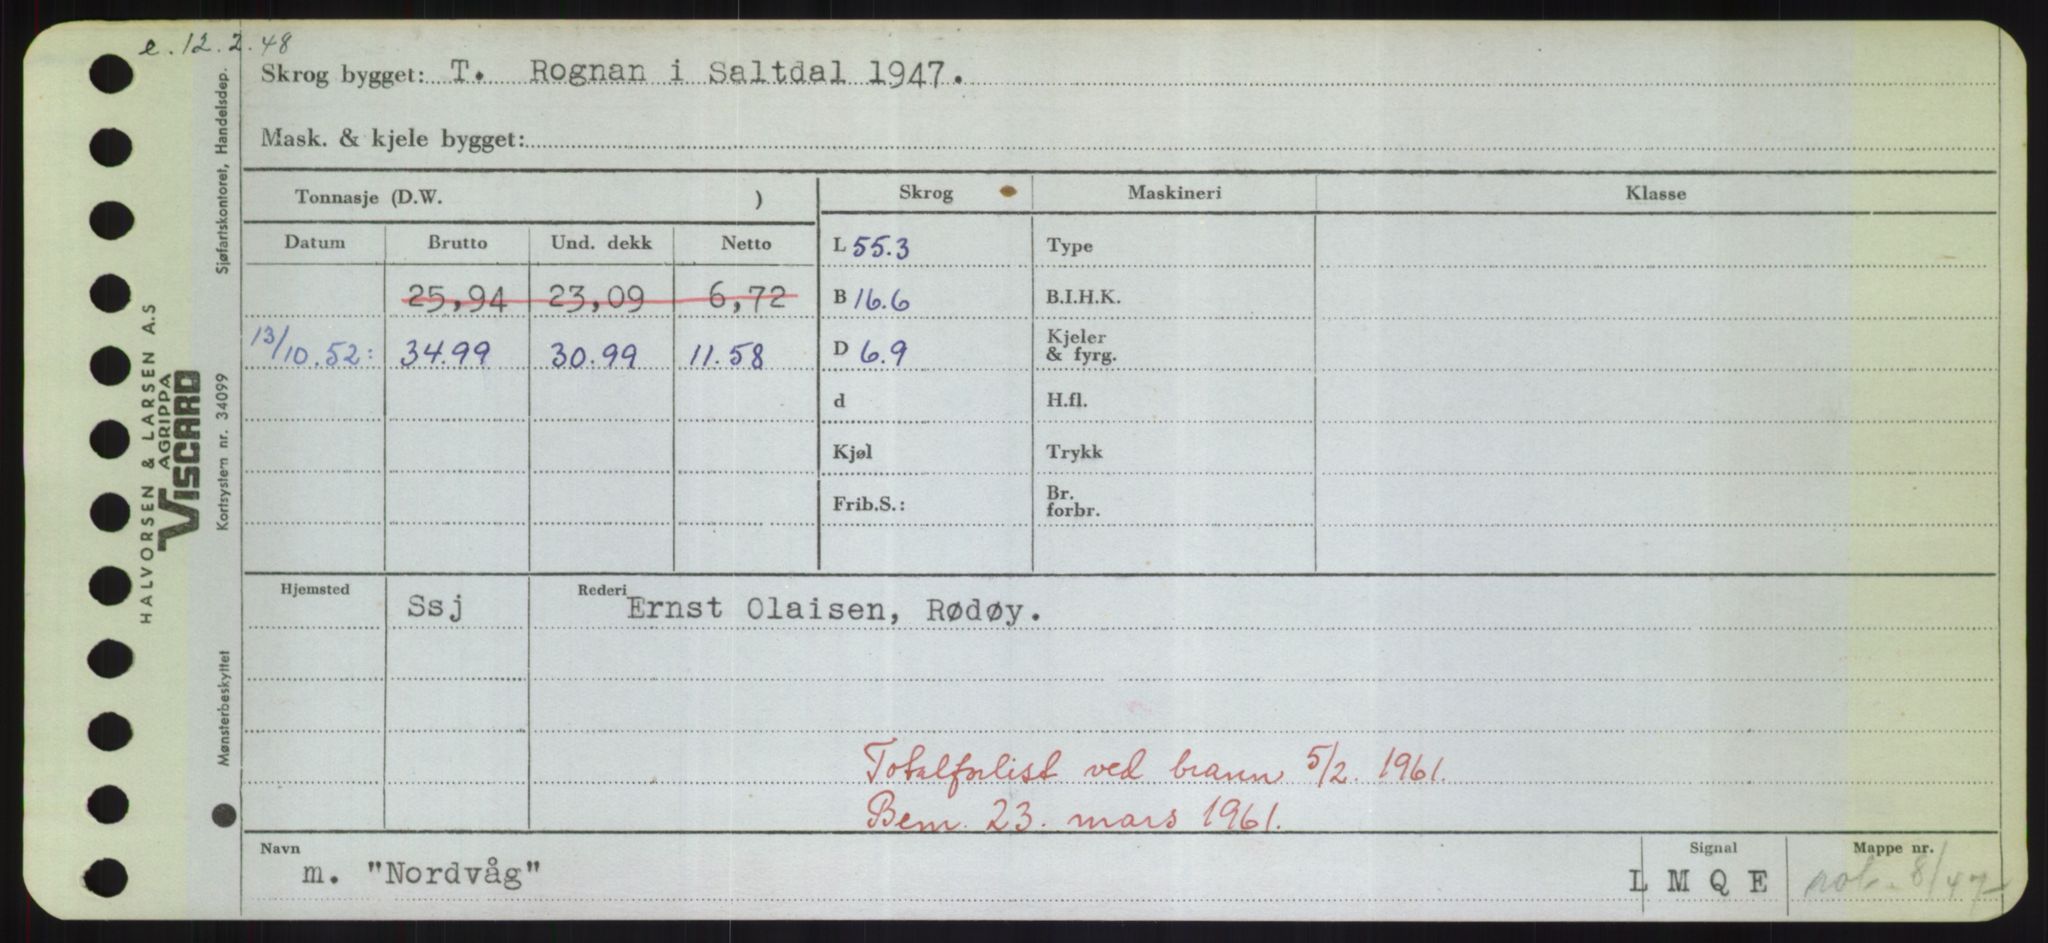 e. 12.2.48
Skrog bygget: T. Rognan i Saltdal 1947.
Mask. & kjele bygget:
Tonnasje (D.W. )
Skrog
Maskineri
Klasse
Datum Brutto Und. dekk Netto
L 55.3
Type
25,94 23,09 6,72
B 16.6
B.I.H.K.
13/10.52: 34.99 30.99 11.58
D 6.9
Kjeler
& fyrg.
d
H.fl.
Kjøl
Trykk
Frib.S.:
Br.
forbr.
Hjemsted Ssj Rederi Ernst Olaisen, Rødøy.
Totalforlist ved brann 5/2. 1961.
Bem. 23. mars 1961.
Navn
m. "Nordvåg"
Signal
L M Q E
Mappe nr.
not. 8/47
HALVORSEN & LARSEN A.S
AGRIPPA
VISCARD
Kortsystem nr. 34099
Sjøfartskontoret, Handelsdep.
Mønsterbeskyttet